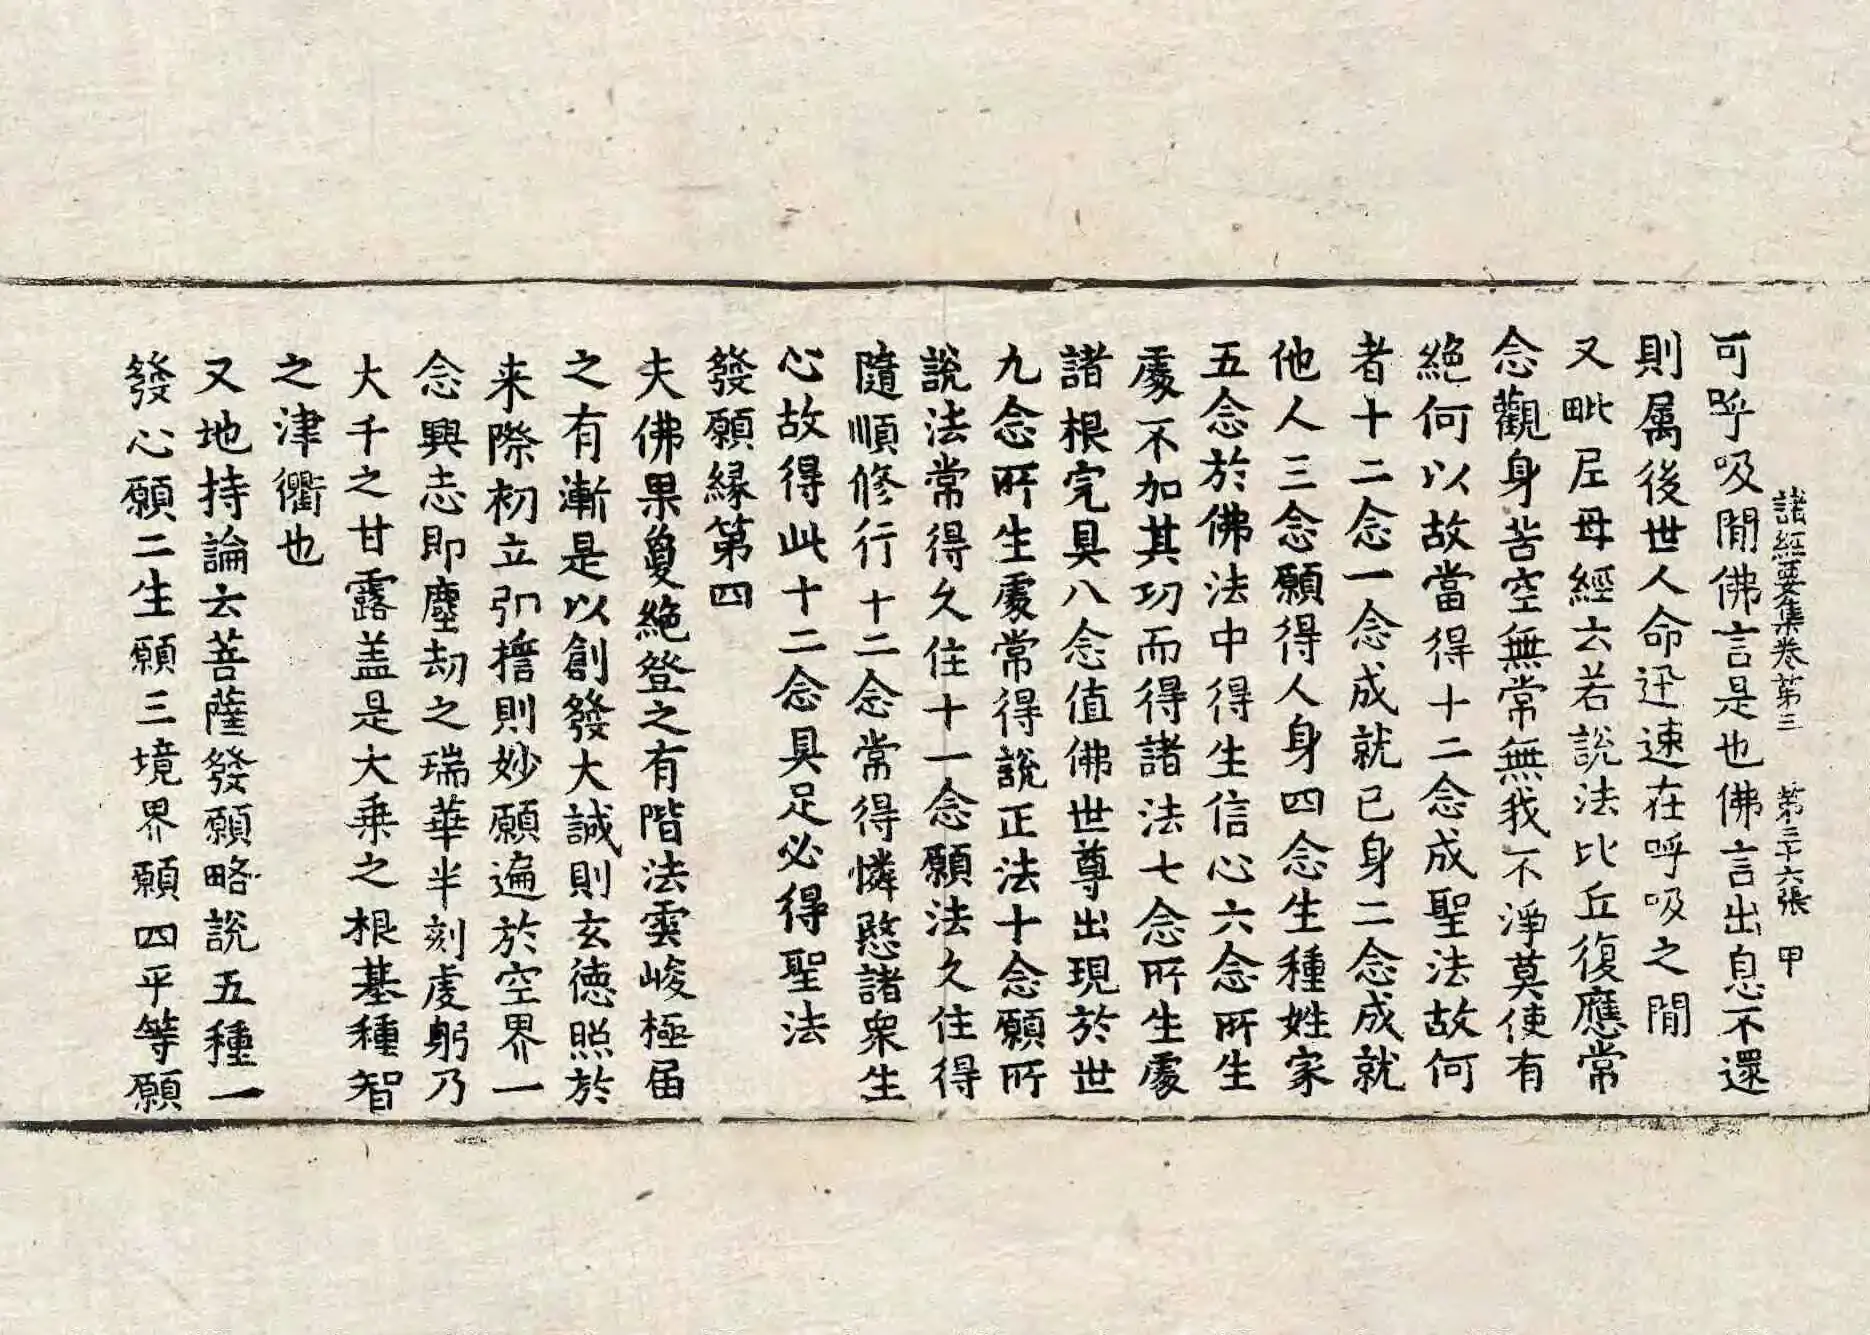 諸經要集卷第三 第三十六張 甲
可呼吸閒佛言是也佛言出息不還
則属後世人命迅速在呼吸之閒
又毗尼母經云若說法比丘復應常
念觀身苦空無常無我不淨莫使有
絕何以故當得十二念成聖法故何
者十二念一念成就已身二念成就
他人三念願得人身四念生種姓家
五念於佛法中得生信心六念所生
處不加其功而得諸法七念所生處
諸根完具八念值佛世尊出現於世
九念所生處常得說正法十念願所
說法常得久住十一念願法久住得
隨順修行十二念常得憐愍諸衆生
心故得此十二念具足必得聖法
發願緣第四
夫佛果敻絕登之有階法雲峻極届
之有漸是以創發大誠則玄徳照於
来際初立弘擔則妙願遍於空界一
念興志即塵劫之瑞華半刻虔躬乃
大千之甘露盖是大乗之根基種智
之津衢也
又地持論云菩薩發願略說五種一
發心願二生願三境界願四平等願